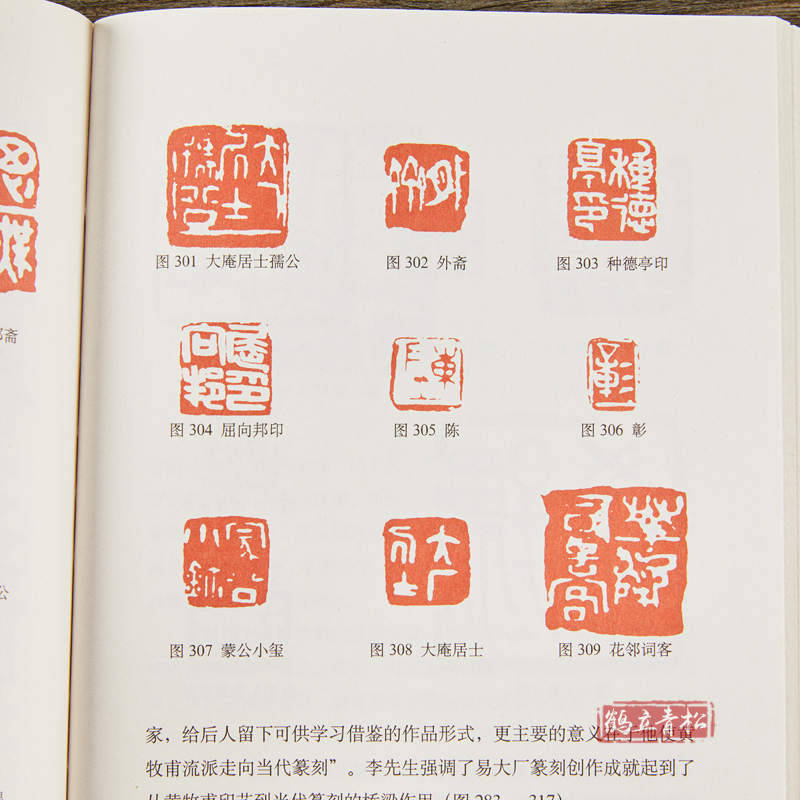 图 301 大庵居士孺公
图 302 外斋
图 303 种德亭印
图 304 屈向邦印
图 305 陈
图 306 彰
图 307 蒙公小玺
图 308 大庵居士
图 309 花邻词客
鹤立青松
家，给后人留下可供学习借鉴的作品形式，更主要的意义在于他使黄
牧甫流派走向当代篆刻”。李先生强调了易大厂篆刻创作成就起到了
从黄牧甫印花到当代篆刻的桥梁作用（图 283 — 317）
斋
公